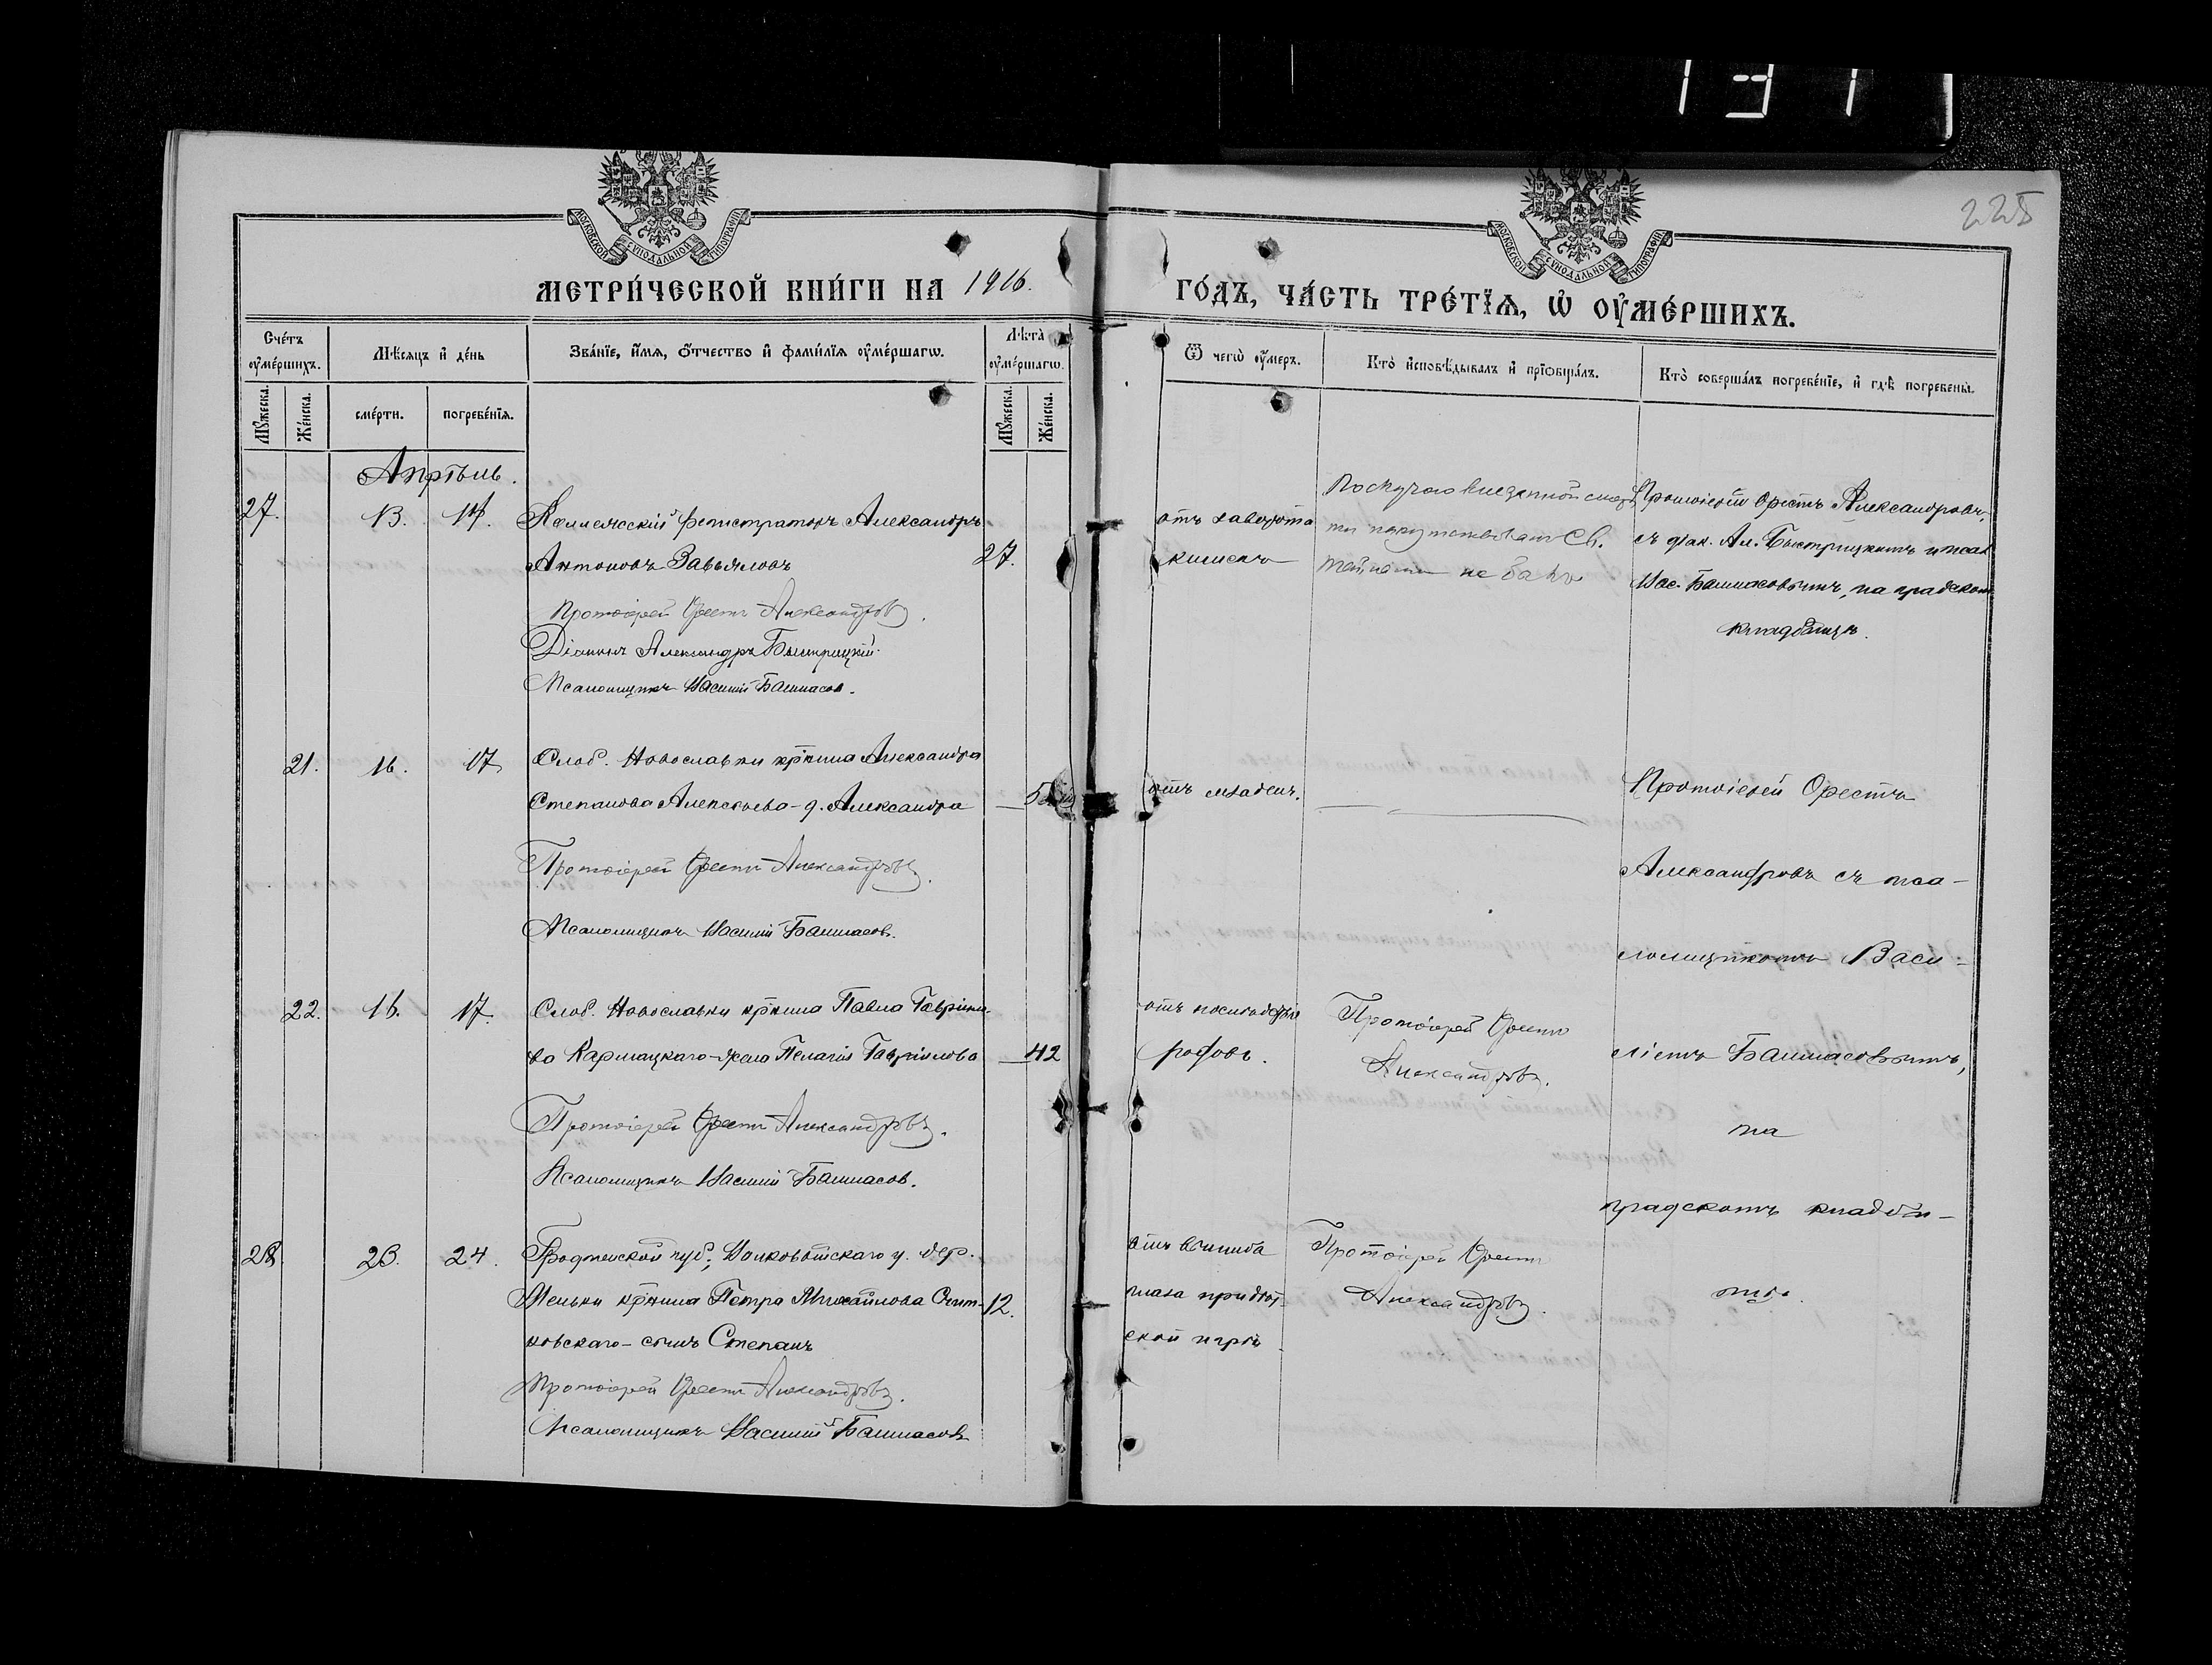 131
225
МОСКОВСКОЙ СѴНОДАЛЬНОЙ ТИПОГРАФІИ
МОСКОВСКОЙ СѴНОДАЛЬНОЙ ТИПОГРАФІИ
МЕТРИ́ЧЕСКОЙ КНИ́ГИ НА 1916.
ГО́ДЪ, ЧА́СТЬ ТРЕ́ТЇѦ, Ѡ҆ ОУ҆МЕ́РШИХЪ.
Сче́тъ оу҆ме́ршихъ.
Мꙋ́жеска.
Же́нска.
Мѣ́сѧцъ и҆ де́нь
сме́рти.
погребе́нїѧ.
Зва́нїе, и҆́мѧ, ѻ҆́тчество и҆ фами́лїѧ оу҆ме́ршагѡ.
Лѣ́та оу҆ме́ршагѡ.
Мꙋ́жеска.
Же́нска.
Ѿ чегѡ̀ оу҆́меръ.
Кто̀ и҆сповѣ́дывалъ и҆ прїѡбща́лъ.
Кто̀ соверша́лъ погребе́нїе, и҆ гдѣ̀ погребены̀.
Апрѣль.
27.
13.
Коллежскій регистраторъ Александръ
Антоновъ Завьяловъ
27.
Протоіерей Орестъ Александровъ.
Діаконъ Александръ Быстрицкій.
Псаломщикъ Василій Башмасов.
отъ заворота
кишекъ
По случаю внезапной смер-
ти напутствован Св.
Тайнами не былъ
Протоіерей Орестъ Александровъ,
съ діак. Ал. Быстрицкимъ и псал
Вас. Башмасовымъ, на градском
кладбищѣ.
21.
16.
17
Слоб. Новославки кр-нина Александра
Степанова Алексѣева - д. Александра
5
Протоіерей Орестъ Александровъ.
Псаломщикъ Василій Башмасов.
отъ младенч.
Протоіерей Орестъ
Александровъ съ пса-
ломщикомъ Васи-
ліемъ Башмасовымъ,
на
градскомъ кладби-
щѣ.
22.
16.
17.
Слоб. Новославки кр-нина Павла Гаврило-
ва Кармацкаго - жена Пелагія Гаврилова
42
Протоіерей Орестъ Александровъ.
Псаломщикъ Василій Башмасов.
отъ
родовъ.
Протоіерей Орестъ
Александровъ.
28
23.
24.
Гродненской губ., Волковыскаго у. дер.
кр-нина Петра Михайлова
ковскаго - сынъ Степанъ
12.
Протоіерей Орестъ Александровъ.
Псаломщикъ Василій Башмасов
отъ
глаза при дѣт-
ской игрѣ.
Протоіерей Орестъ
Александровъ.